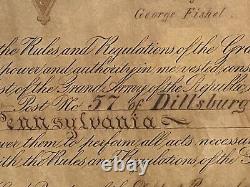 George Fishel
the Rules and Regulations of the Gra
power and authority in me vested, const
st of the Grand Army of the Republic
Post No 57 of Dillsburg
Pennsylvania
wer them to perform all acts necessa
ith the Rules and Regulations of the